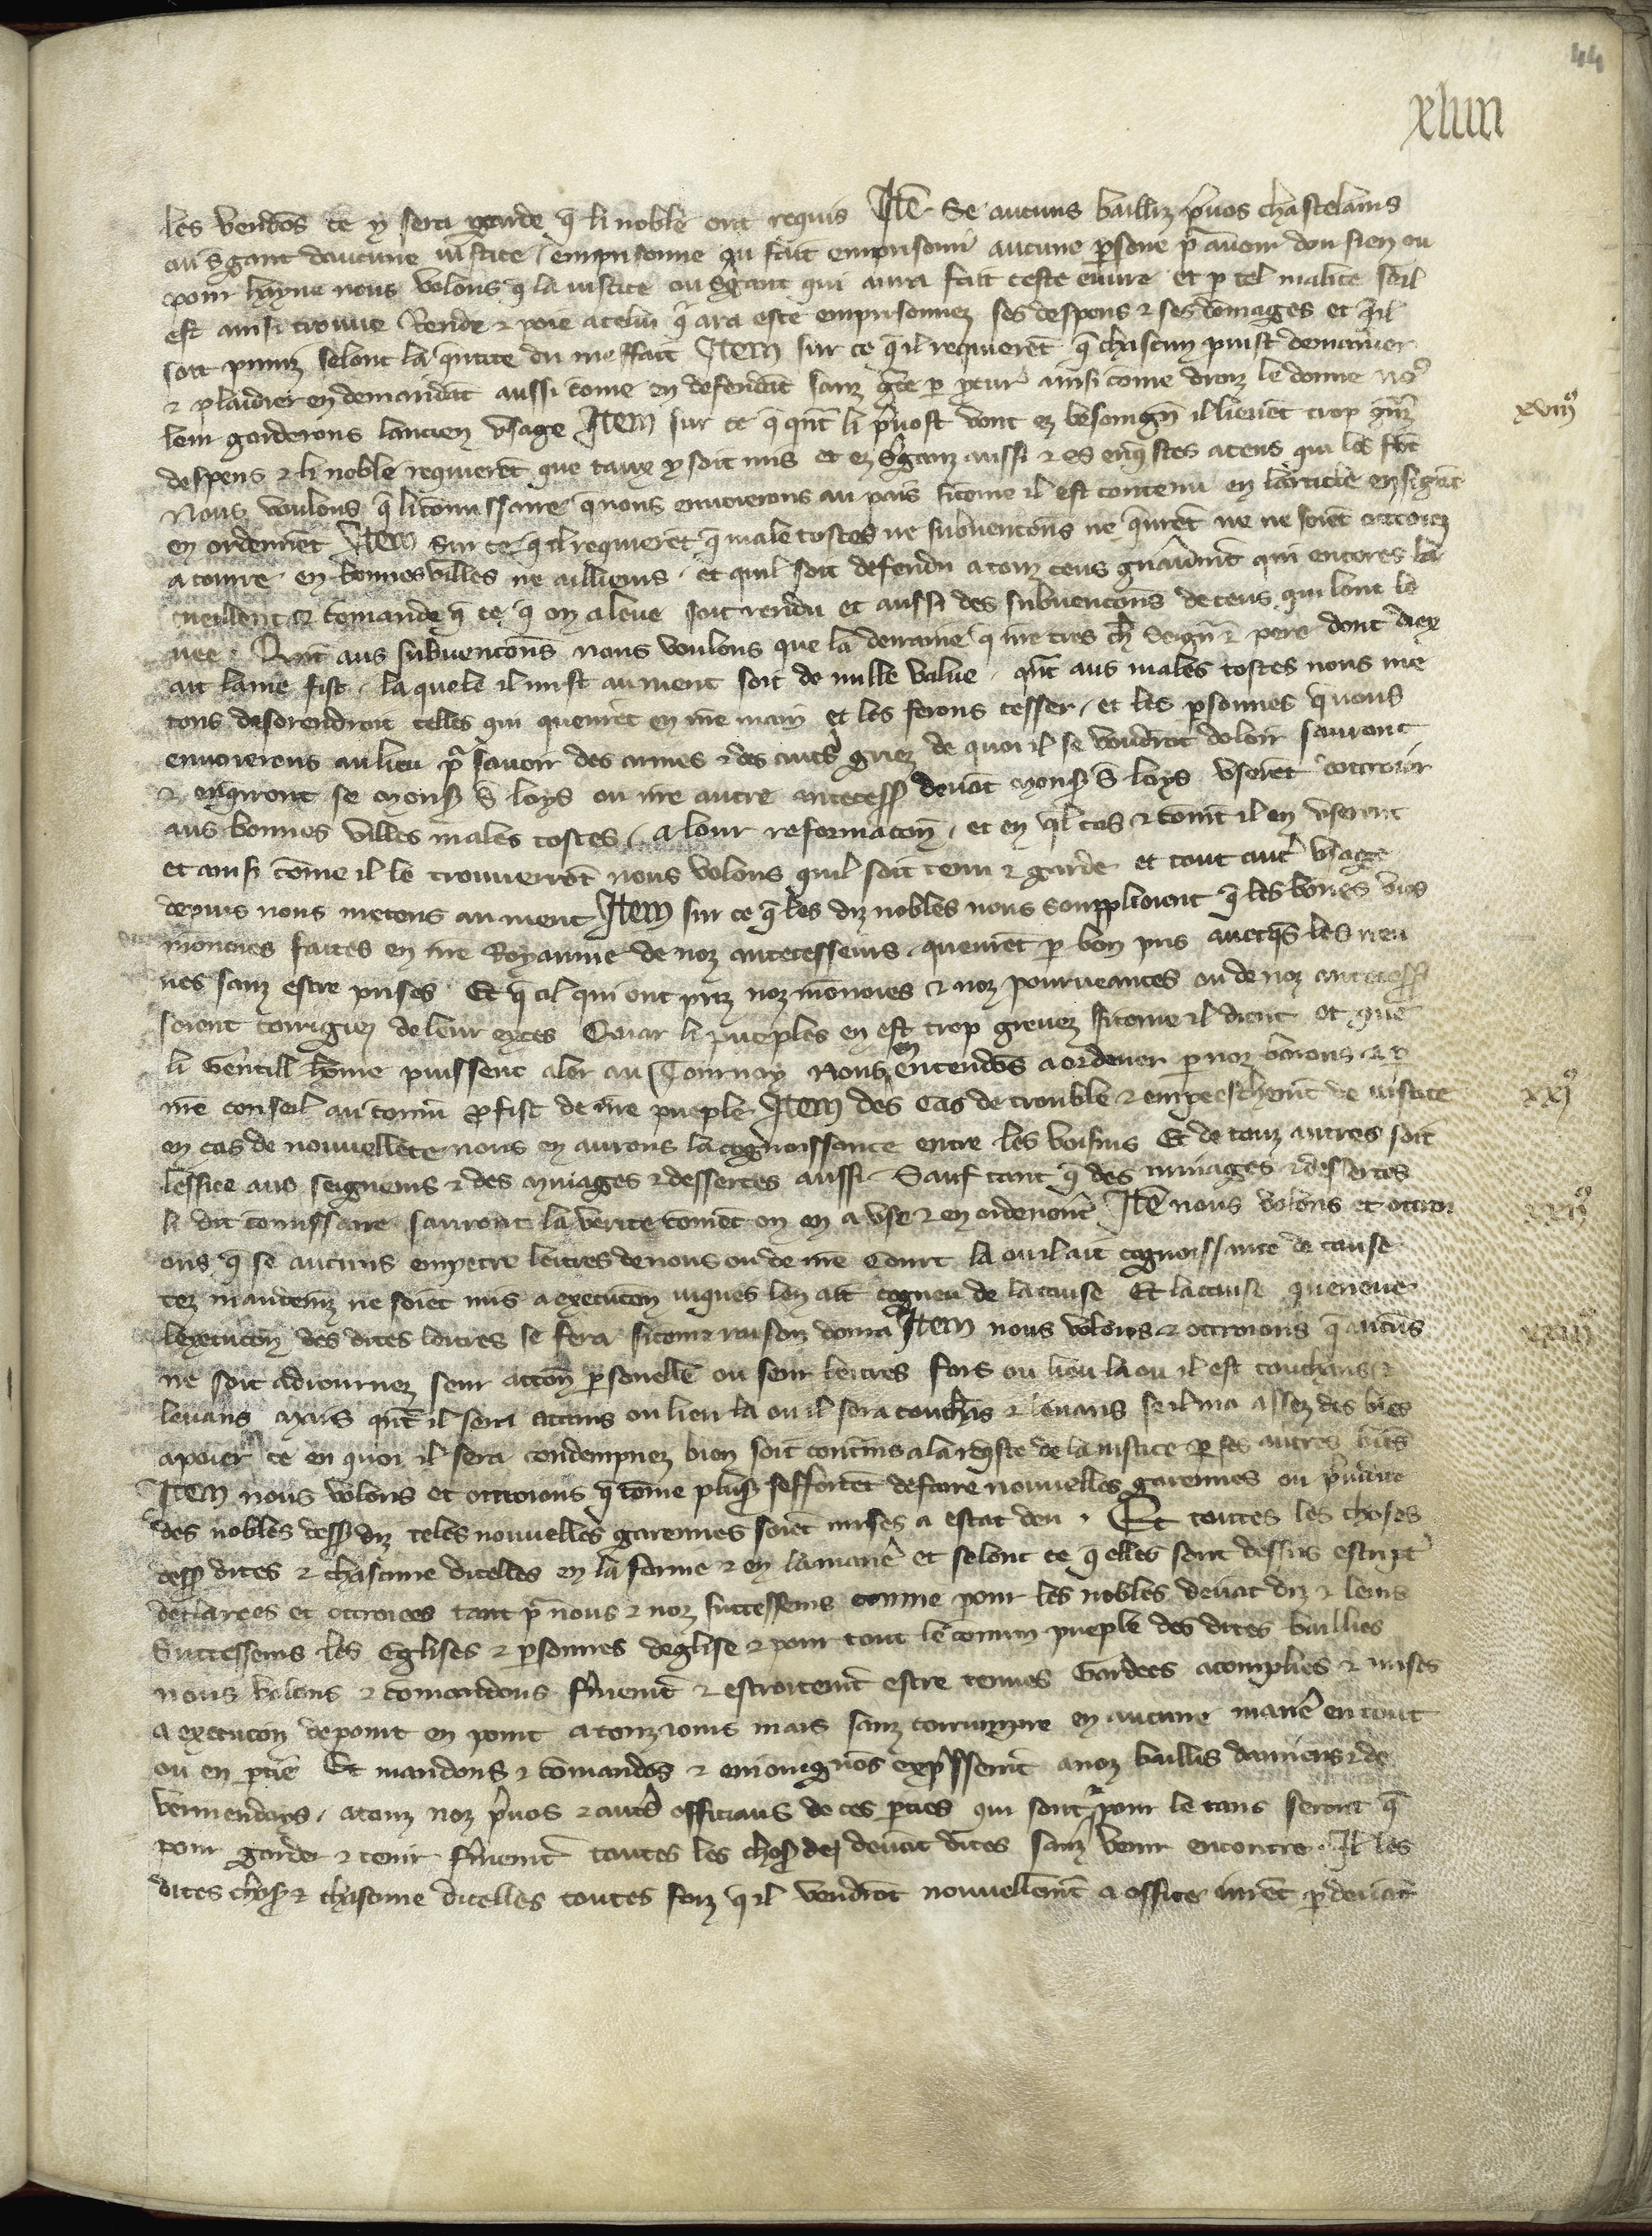 44
xliiii
les vendōs ce y sera garde q̄ li noble ont requis Itē Se aucuns bailliz p̄uos chastelains
ou s̄gant daucune iustice emprisonne ou fait emprisonn̄ aucune p̄sone pͬ auoir don sien ou
pour hayne nous volons q̄ la iustice ou s̄gant qui aura fait ceste euure et p̄ tel malice soil
est ainsi trouue Rende ⁊ poie a celui q̄ ara este emprisonnez ses despens ⁊ ses dōmages et q̄il
soit puniz selont la q̄ntite du meffait Item sur ce q̄ il requierēt q̄ chascun puist demander
⁊ plaidier en demandāt aussi cōme en defendāt sanz gr̄ce p̄ p̄cur̄ ainsi cōme droiz le donne no᷒
leur garderons lancien vsage Item sur ce q̄ qn̄t li p̄uost vont ez besoingn̄ il lieuēt trop gr̄nz xviii⁹
despens ⁊ li noble requierēt que taux y soit mis et ez s̄ganz aussi ⁊ es enq̄stes a ceus qui les fōt
Nous voulons q̄ li cōmissaire q̄ nous enuoierons au pais sicome il est contenu en larticle ensigāt
en ordenēt Item Sur ce q̄ il requierēt q̄ male tostes ne subuencōns ne q̄urēt ne ne soiēt ottroiez
a courre en bonnes villes ne ailleurs et quil soit defendu a touz ceus gn̄aumt̄ qui encores la
cueillent ⁊ cōmande q̄ ce q̄ on a leue soit rendu et aussi des subuencōns de ceus qui lont le
uee Qn̄t aus subuencōns nous voulons que la derraine q̄ nr̄e tres ch̄r seign̄r ⁊ pere dont diex
ait lame fist la quele il mist au nient soit de nulle value qn̄t aus males tostes nous me
tons desorendroit celles qui queurēt en nr̄e main et les ferons cesser et les p̄sonnes q̄ nous
enuoierons au lieu pͬ sauoir des armes ⁊ des aut̄s griez de quoi il se voudrōt doloir sauront
⁊ enq̄rront se monsͬ s̄ loys ou nr̄e autre antecess̄ deuāt monsͬ s̄ loys vserēt dottroier
aus bonnes villes males tostes a lour reformacōn et en q̄l cas ⁊ cōmt̄ il en vserent
et ainsi cōme il le trouuerrōt nous volons quil soit tenu ⁊ garde et tout aut̄ vsage
depuis nous metons au nient Item sur ce q̄ les diz nobles nous souplioient q̄ les bōnes vies
monoies faites en nr̄e Royaume de noz antecesseurs queurēt p̄ bon pris auecq̄s les neu
ues sanz estre prises Et q̄ cil qui ont priz noz monoies ⁊ noz pourueances ou de noz antecess̄
soient corrigiez de leur exces Quar li pueples en est trop greuez sicome il dient et que
li Gentill home puissent aler au Tournoy Nous en entendōs a ordener p̄ noz barons ⁊ p̄
nr̄e conseil au cōmū profist de nr̄e pueple Item des Cas de trouble ⁊ empeeschemt̄ de iustice xxi⁹
en cas de nouuellete nous en aurons la cognoissance entre les voisins Et de touz autres soit
lessiee aus seigneurs ⁊ des minages ⁊ dessertes aussi Sauf tant q̄ des minages ⁊ dessertes
li dit cōmissaire sauront la verite cōmēt on en a vse ⁊ en ordenont̄ Itē nous volons et ottroi xxii⁹
ons q̄ se aucuns empetre lettres de nous ou de nr̄e Court la ou il ait cognoissance de cause
tez mandemz̄ ne soiēt mis a execucōn iuques len ait cogneu de la cause Et la cause queneue
lexecucōn des dites lettres se fera sicome raison donra Item nous volons ⁊ ottroions q̄ aucūs xxiii⁹
ne soit adiournez seur accōn p̄sonelle ou seur lettres fors ou lieu la ou il est couchans ⁊
leuans mais qn̄t il sera attains ou lieu la ou il sera couchās ⁊ leuans se il na assez des biēs
a poier ce en quoi il sera condempnez bien soit contrains a la reqͤste de la iustice p̄ ses autres biēs
Item nous volons et ottroions q̄ cōme plusͬ sefforcēt de faire nouuelles garennes ou p̄iudice
des nobles dess̄ diz teles nouuelles garennes soiēt mises a estat deu Et toutes les choses
dess̄ dites ⁊ chascune dicelles en la forme ⁊ en la manē et selont ce q̄ elles sont dessus escript̄
declarees et ottroiees tant pͬ nous ⁊ noz successeurs comme pour les nobles deuāt diz ⁊ leurs
Successeurs les Eglises ⁊ p̄sonnes deglise ⁊ pour tout le cōmun pueple des dites baillies
nous volons ⁊ cōmandons fermemt̄ ⁊ estroitemt̄ estre tenues Gardees acomplies ⁊ mises
a execucōn de point en point a touz iours mais sanz corrumpre en aucune manē en tout
ou en p̄tie Et mandons ⁊ cōmandōs ⁊ enioingnōs exp̄ssemt̄ a noz baillis damiens ⁊ de
vermendoys a touz noz p̄uos ⁊ aut̄s officiaus de ces p̄ties qui sont ⁊ pour le tans seront q̄
pour garder ⁊ tenir fermemt̄ toutes les chosͬ deuāt dites sanz venir encontre Il les
dites chosͬ ⁊ chascune dicelles toutes foiz q̄ il vendrōt nouuellemt̄ a office iurēt p̄ deuāt